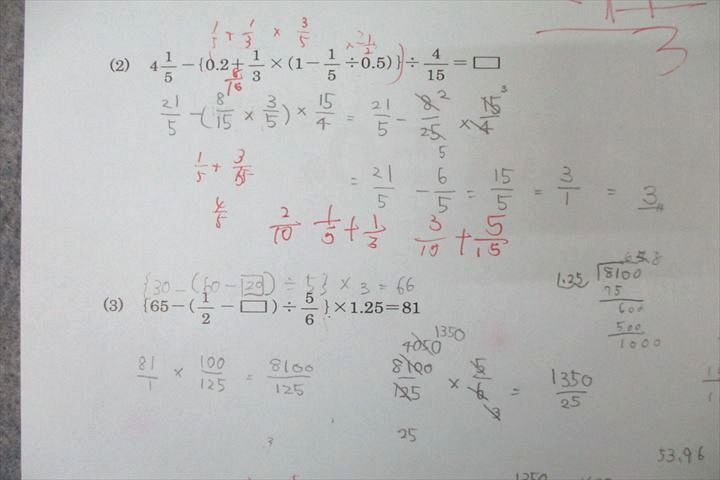 1/5 + 1/3 × 3/5
(2) 4 1/5 − {0.2 + 1/3 × (1 − 1/5 ÷ 0.5)} ÷ 4/15 = □
21/5 − (8/15 × 3/5) × 15/4 = 21/5 − 8/25 × 15/4
1/5 + 3/15
= 21/5 − 6/5 = 15/5 = 3/1 = 3
2/10 1/5 + 1/3 3/15 + 5/15
{30 − (60 − □) ÷ 5} × 3 = 66
(3) {65 − (1/2 − □) ÷ 5/6} × 1.25 = 81
8100
75
600
500
1000
81/1 × 100/125 = 8100/125
4050 1350
8100/125 × 5/6 = 1350/25
25
53.96